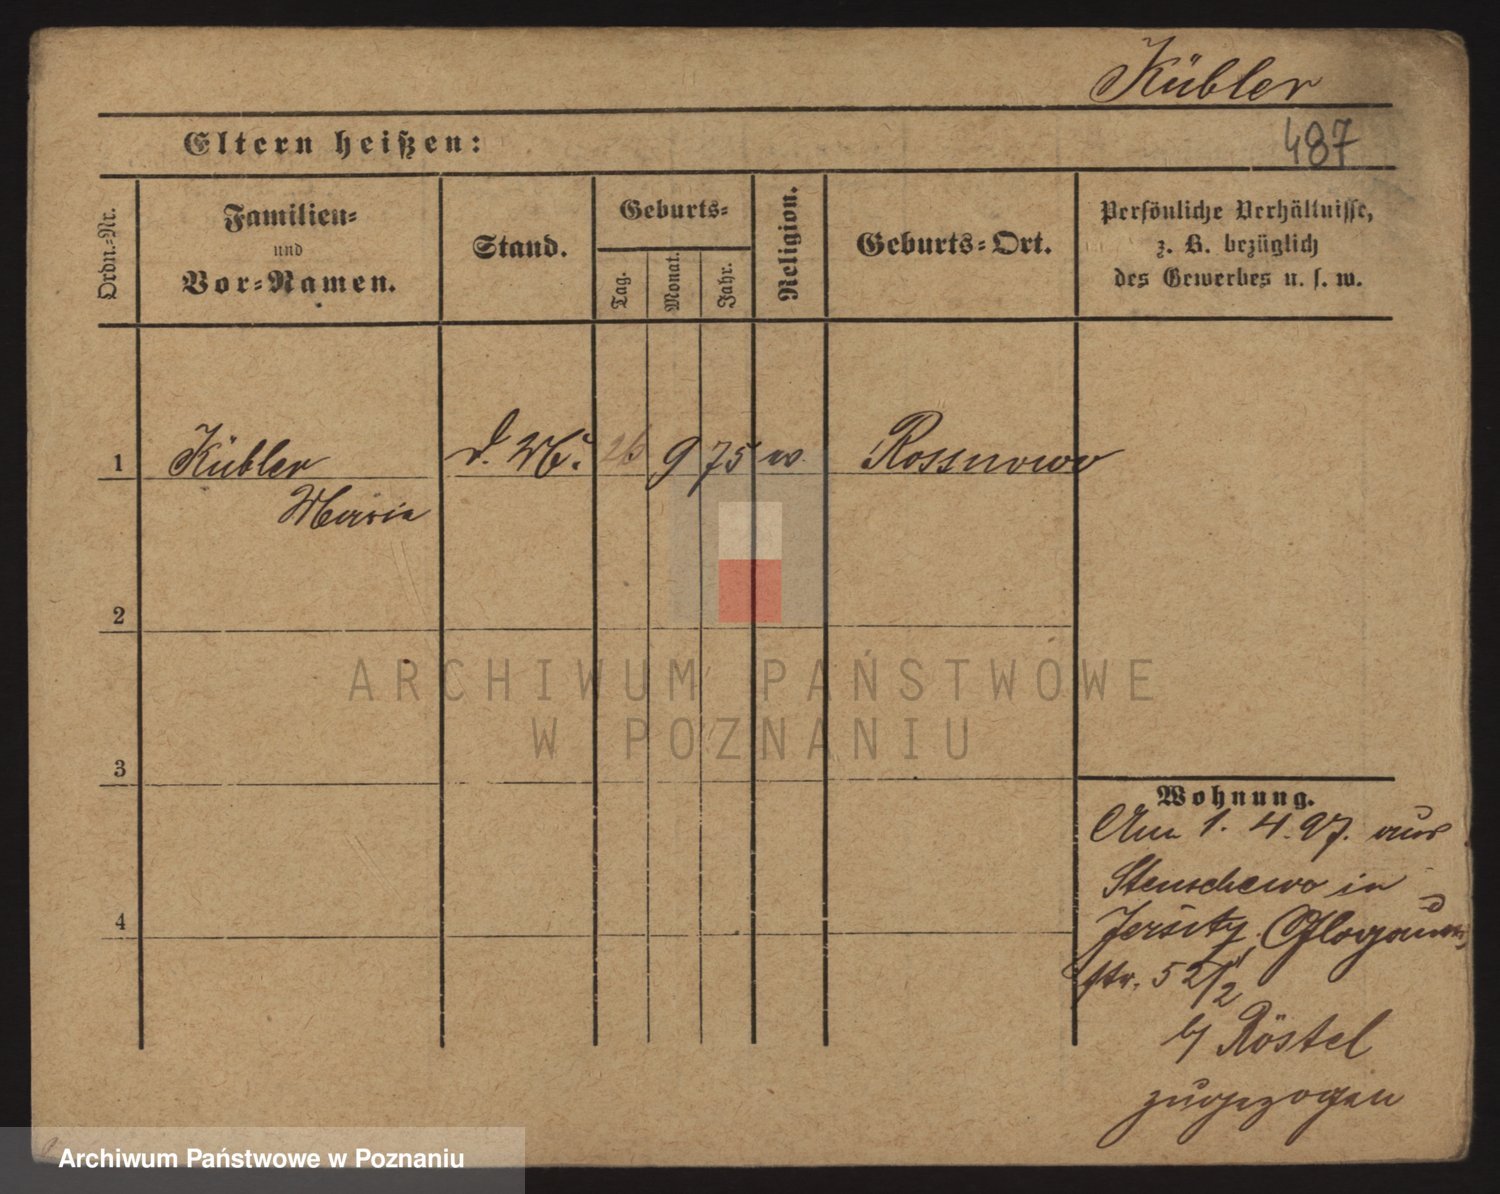 Kübler
487
Eltern heißen:
Ordn.-Nr.
Familien-
und
Vor-Namen.
Stand.
Geburts-
Tag.
Monat.
Jahr.
Religion.
Geburts-Ort.
Persönliche Verhältnisse,
z. B. bezüglich
des Gewerbes u. s. w.
1
Kübler
Maria
d. M.
26
9
75
Rossnowo
2
3
4
Wohnung.
Am 1. 4. 97. aus
Stenschewo in
Jersitz, Glogauer
str. 52
b/ Röstel
zugezogen
ARCHIWUM PAŃSTWOWE
W POZNANIU
Archiwum Państwowe w Poznaniu